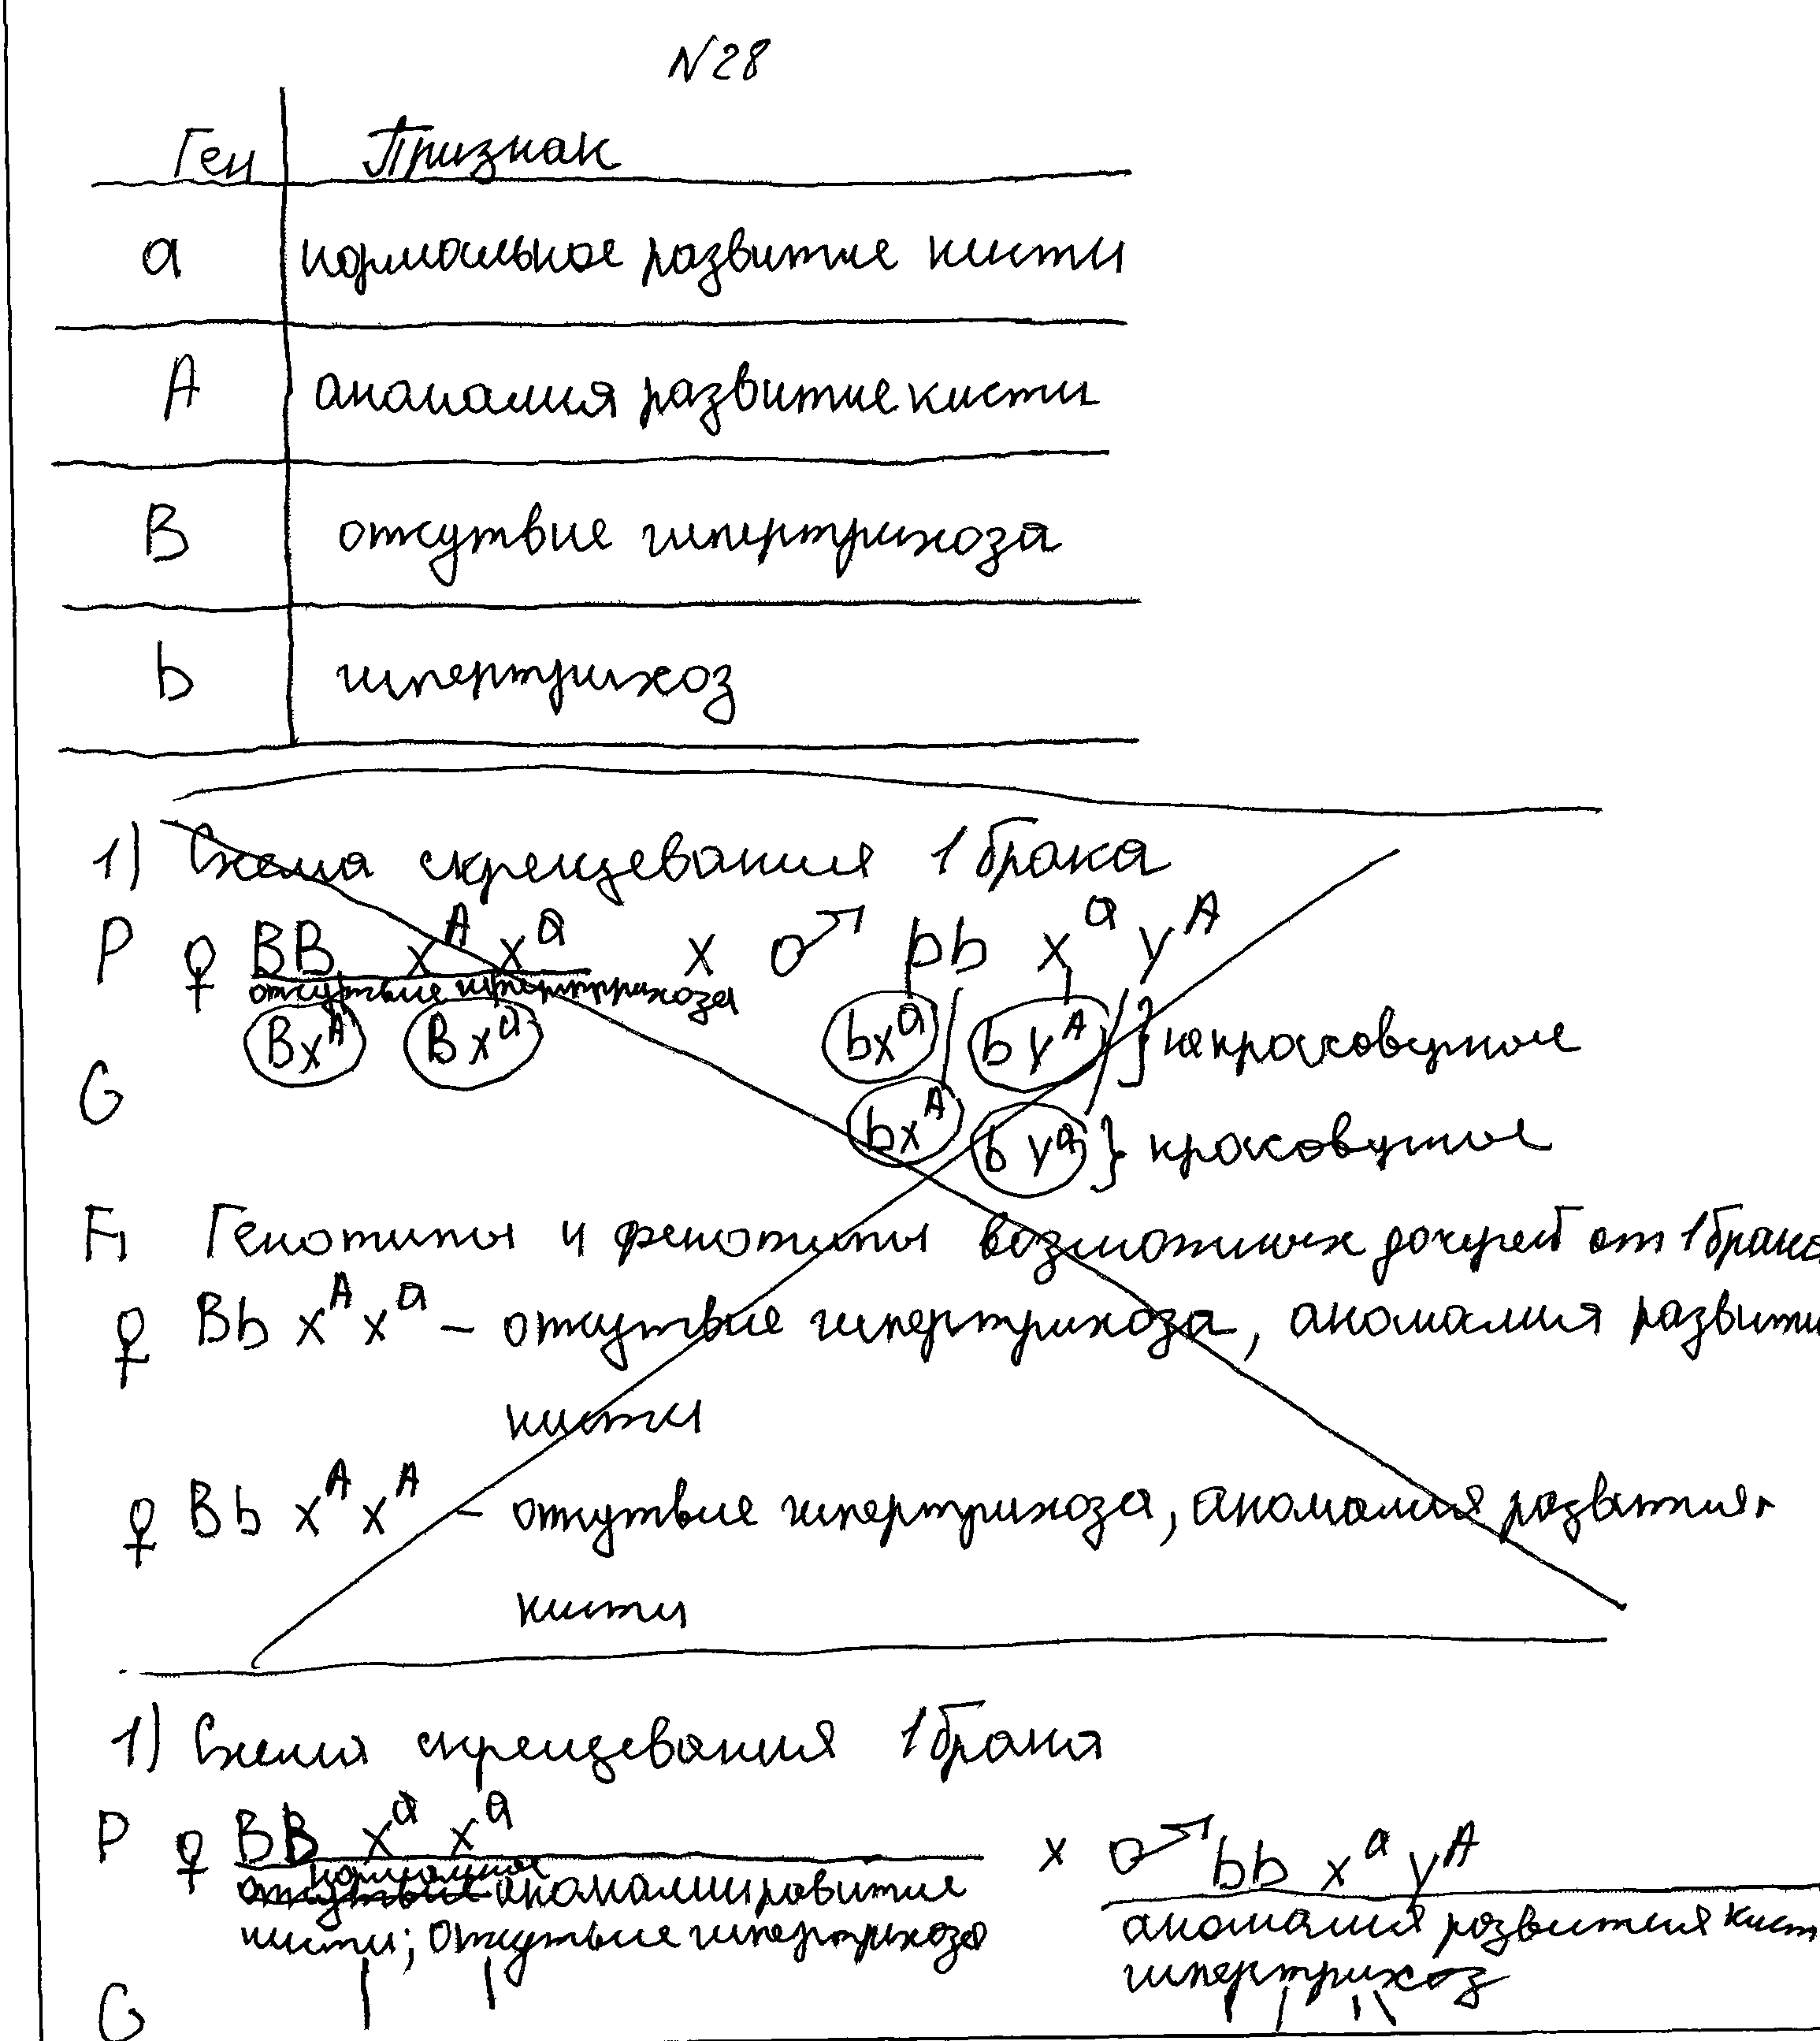 N28
Ген Признак
a нормальное развитие кисти
A анамалия развитие кисти
B откутвие гипертрихоза
b гипертрихоз
1) Схема скрещевания 1 брака
P ♀ BB x^A x^a x ♂ bb x^a y^A
откутвие гипертрихоза
Bx^A Bx^a bx^a by^A } некроссоверные
G bx^A by^a } кроссоверные
F1 Генотипы и фенотипы возможных дочерей от 1 брака
♀ Bb x^A x^a – откутвие гипертрихоза, аномалия развити
кисти
♀ Bb x^A x^A – откутвие гипертрихоза, аномалия развития
кисти
1) Схема скрещевания 1 брака
P ♀ BB x^a x^a x ♂ bb x^a y^A
нормальное
откутвие аномалии ровитие аномалия развития кист
кисти; откутвие гипертрихоза гипертрихоз
G